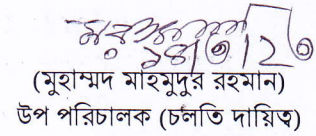 (মুহাম্মদ মাহমুদুর রহমান)
উপ পরিচালক (চলতি দায়িত্ব)